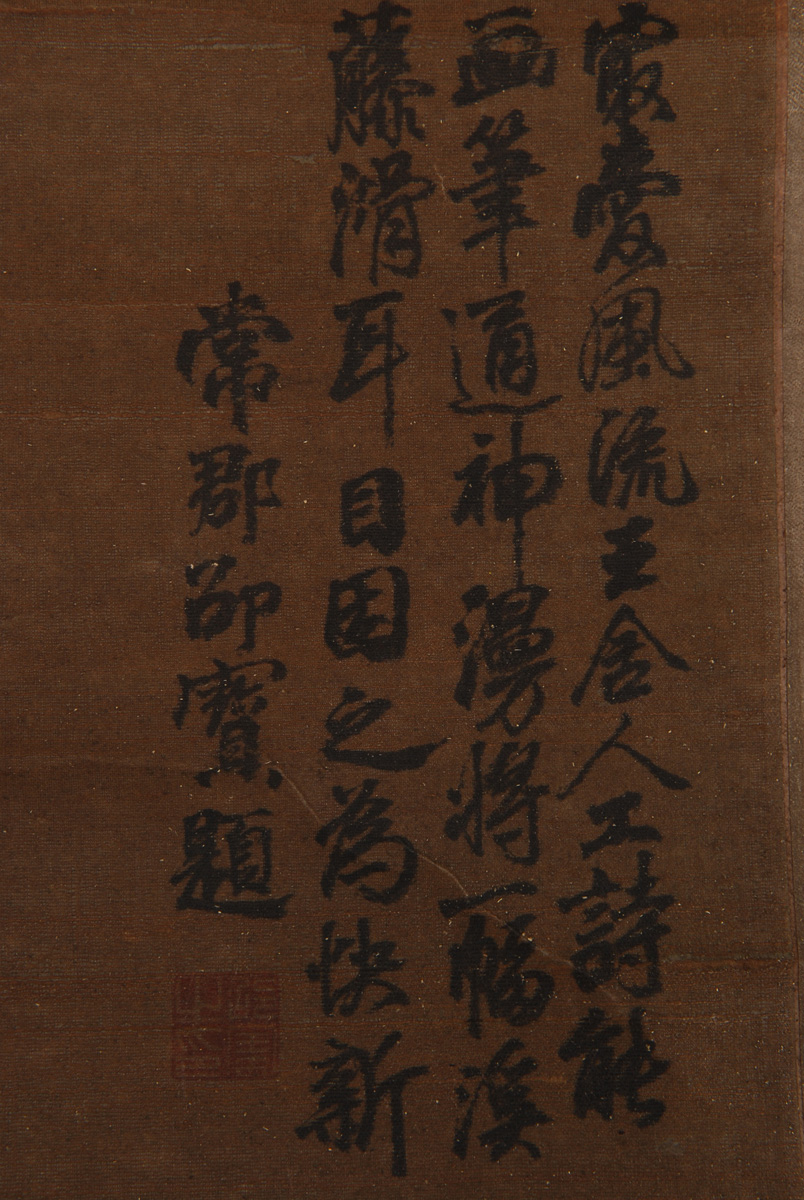 最愛風流王舍人工詩能
画筆通神漫將一幅溪
藤滑耳目因之為快新
常郡邵寶題